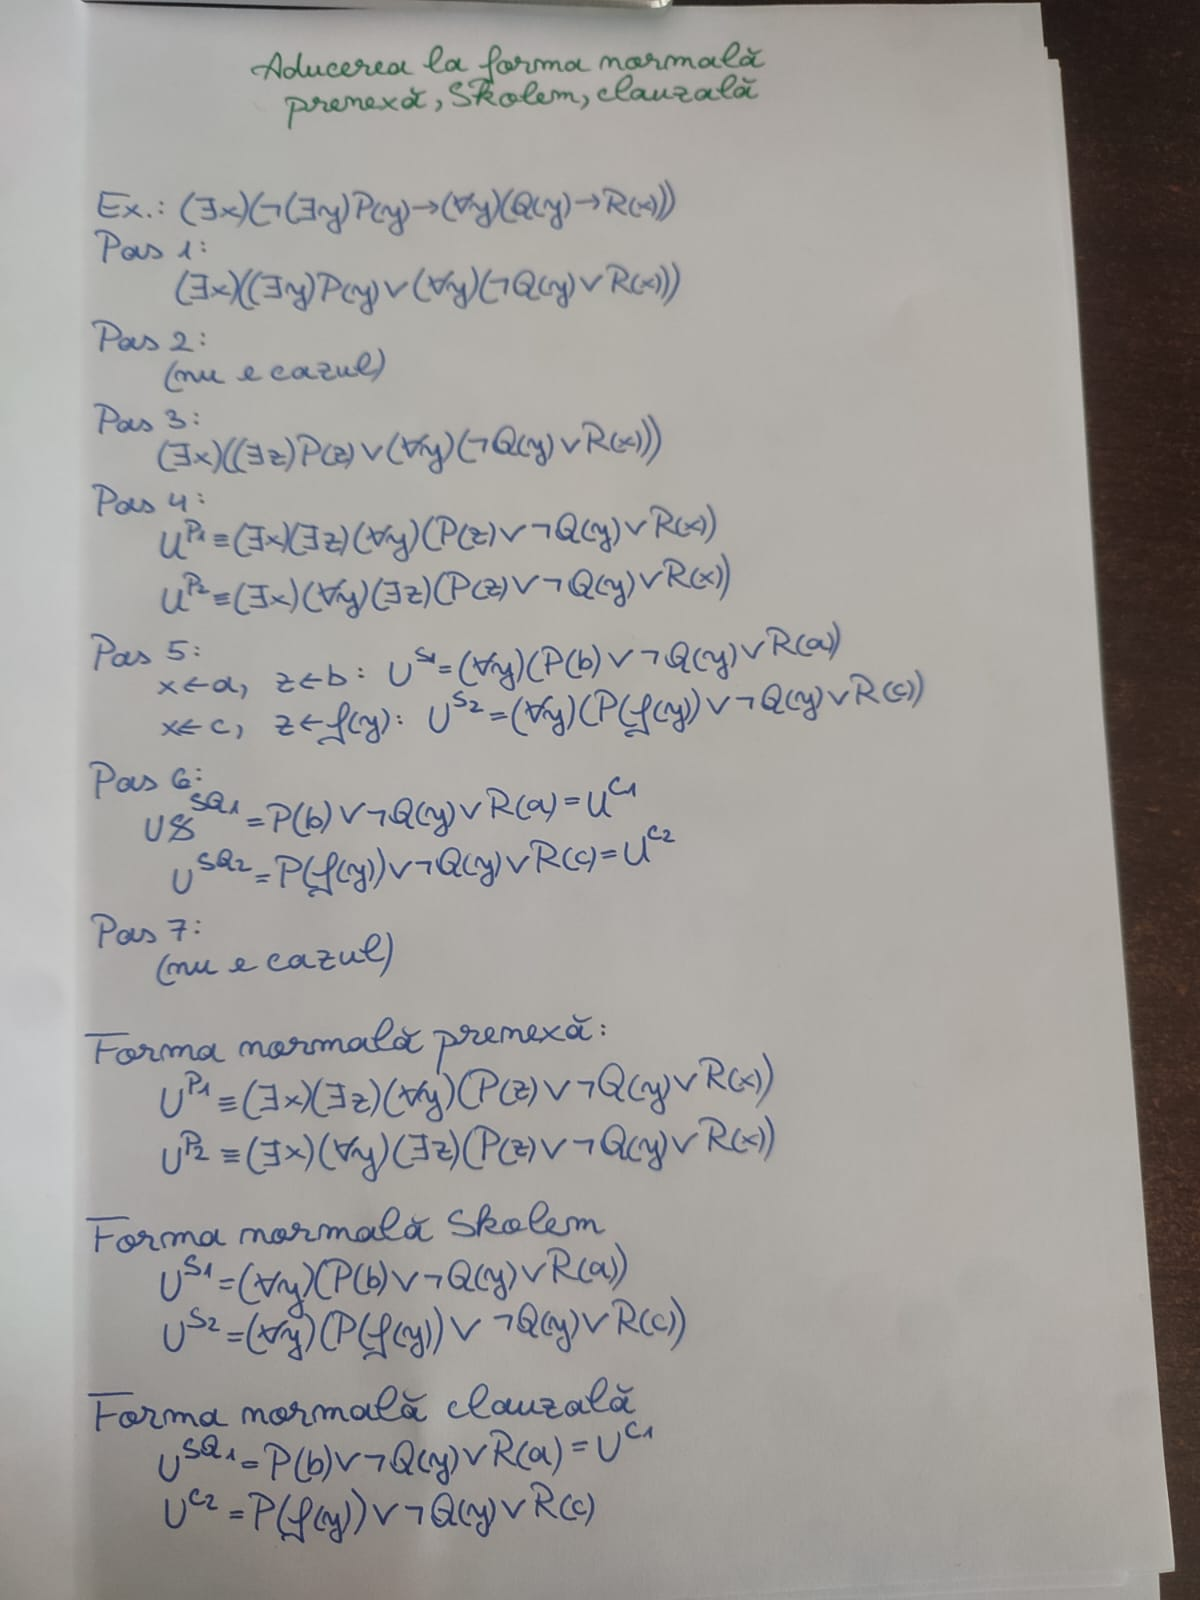 Aducerea la forma normală
prenexă, Skolem, clauzală
Ex.: (∃x)(¬(∃y)P(y)→(∀y)(Q(y)→R(x)))
Pas 1:
(∃x)((∃y)P(y)∨(∀y)(¬Q(y)∨R(x)))
Pas 2:
(nu e cazul)
Pas 3:
(∃x)((∃z)P(z)∨(∀y)(¬Q(y)∨R(x)))
Pas 4:
U^P1≡(∃x)(∃z)(∀y)(P(z)∨¬Q(y)∨R(x))
U^P2≡(∃x)(∀y)(∃z)(P(z)∨¬Q(y)∨R(x))
Pas 5:
x←a, z←b: U^S1=(∀y)(P(b)∨¬Q(y)∨R(a))
x←c, z←f(y): U^S2=(∀y)(P(f(y))∨¬Q(y)∨R(c))
Pas 6:
U^SQ1=P(b)∨¬Q(y)∨R(a)=U^C1
U^SQ2=P(f(y))∨¬Q(y)∨R(c)=U^C2
Pas 7:
(nu e cazul)
Forma normală prenexă:
U^P1≡(∃x)(∃z)(∀y)(P(z)∨¬Q(y)∨R(x))
U^P2≡(∃x)(∀y)(∃z)(P(z)∨¬Q(y)∨R(x))
Forma normală Skolem
U^S1=(∀y)(P(b)∨¬Q(y)∨R(a))
U^S2=(∀y)(P(f(y))∨¬Q(y)∨R(c))
Forma normală clauzală
U^SQ1=P(b)∨¬Q(y)∨R(a)=U^C1
U^C2=P(f(y))∨¬Q(y)∨R(c)